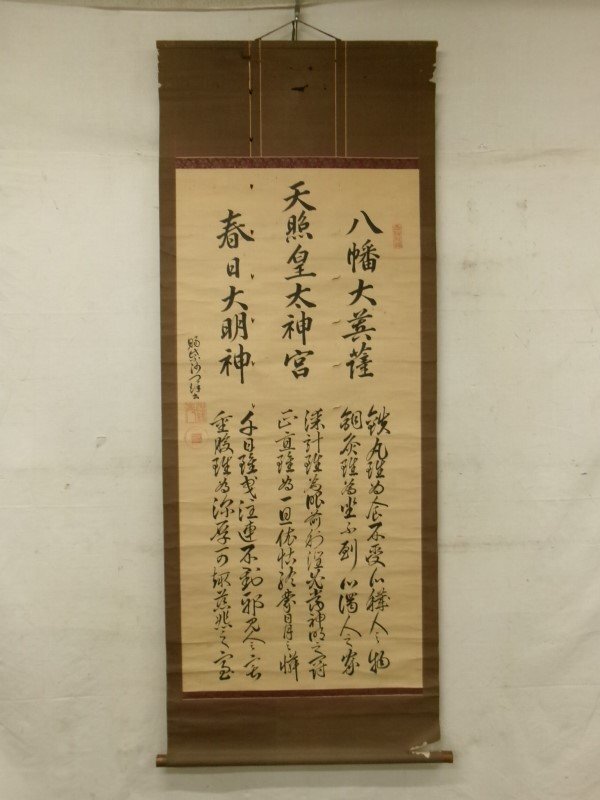 八幡大菩薩
天照皇太神宮
春日大明神
鐵丸雖為食不受心穢人之物
銅炎雖為坐不到心濁人之家
謀計雖為眼前利潤必當神明之罰
正直雖為一旦依怙終蒙日月之憐
千日雖曳注連不到邪見人之家
重服雖為深厚可趣慈悲之室
賜紫沙門